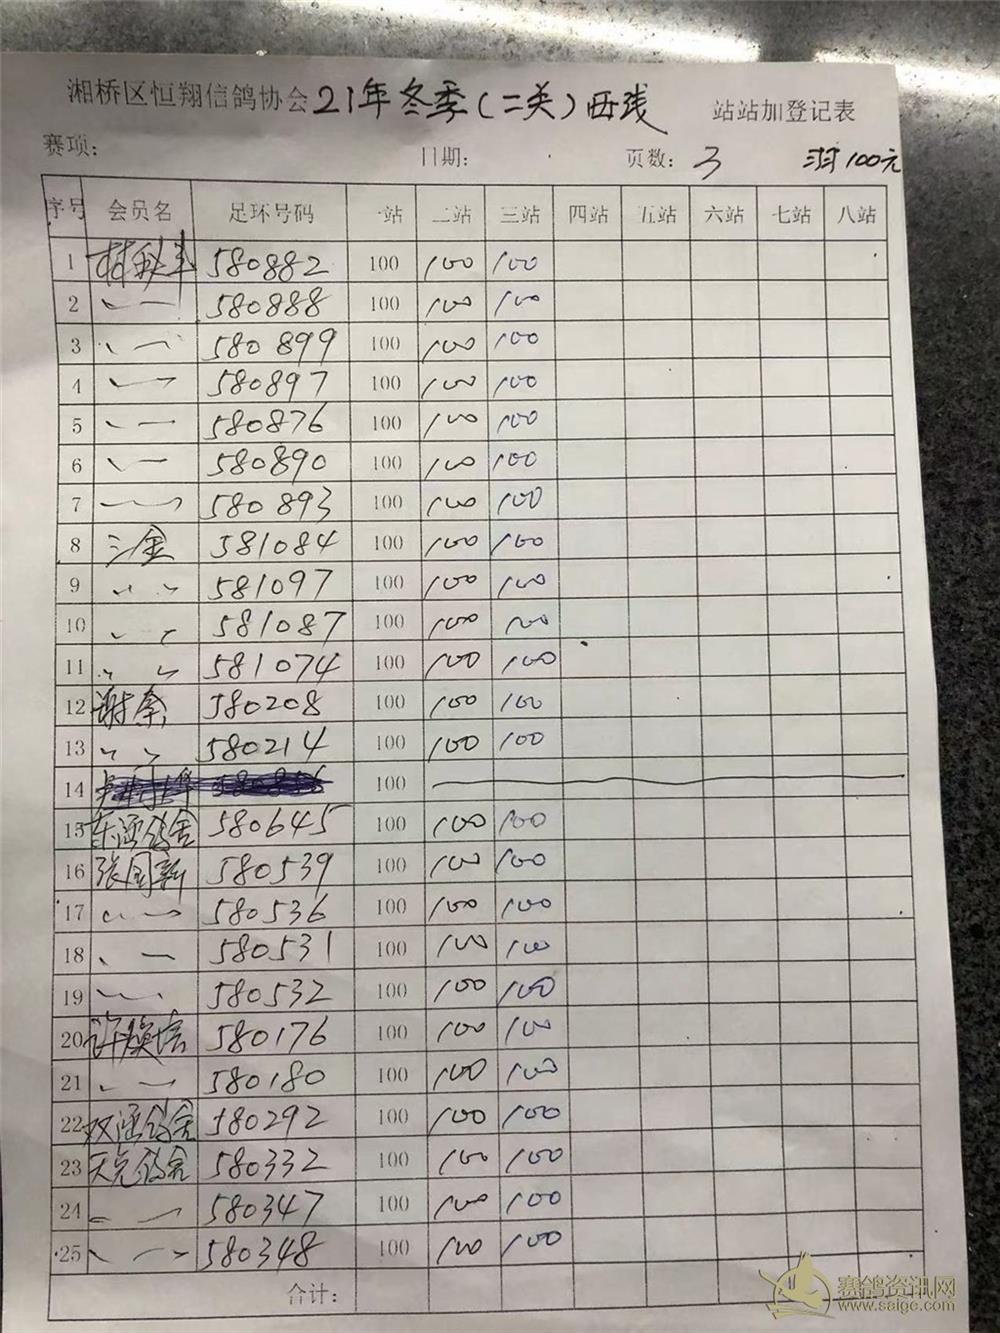 湘桥区恒翔信鸽协会21年冬季(二关)西线 站站加登记表
赛项: 日期: 页数: 3 羽100元
序号 会员名 足环号码 一站 二站 三站 四站 五站 六站 七站 八站
1 580882 100 100 100
2 580888 100 100 100
3 580899 100 100 100
4 580897 100 100 100
5 580876 100 100 100
6 580890 100 100 100
7 580893 100 100 100
8 三金 581084 100 100 100
9 〃 581097 100 100 100
10 〃 581087 100 100 100
11 〃 581074 100 100 100
12 580208 100 100 100
13 〃 580214 100 100 100
14 100
15 580645 100 100 100
16 张国新 580539 100 100 100
17 580536 100 100 100
18 580531 100 100 100
19 580532 100 100 100
20 580176 100 100 100
21 580180 100 100 100
22 双涵鸽舍 580292 100 100 100
23 天亮鸽舍 580332 100 100 100
24 580347 100 100 100
25 580348 100 100 100
合计:
赛鸽资讯网
www.saige.com